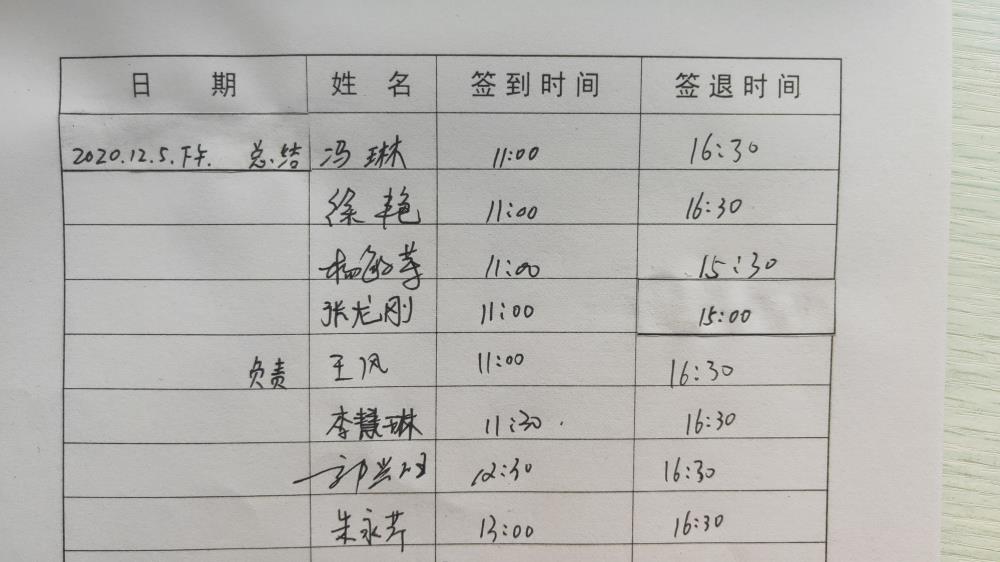 日 期 姓 名 签到时间 签退时间
2020.12.5.下午. 总结 冯琳 11:00 16:30
徐艳 11:00 16:30
11:00 15:30
张龙刚 11:00 15:00
负责 王风 11:00 16:30
李慧琳 11:30. 16:30
12:30 16:30
朱永芹 13:00 16:30